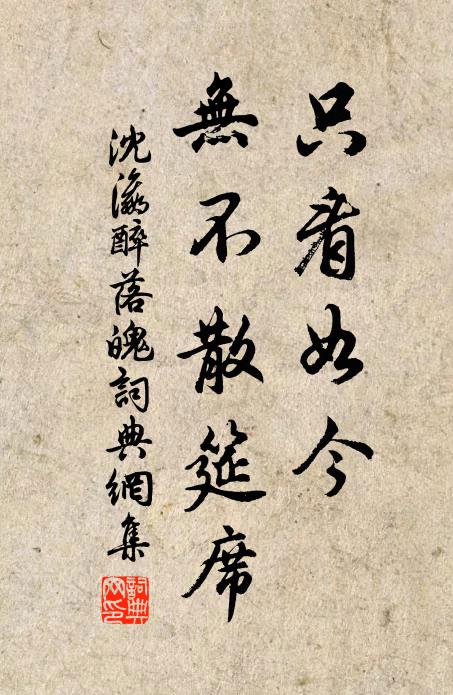 只看如今
無不散筵席
沈瀛醉落魄詞典網集
詞典文印